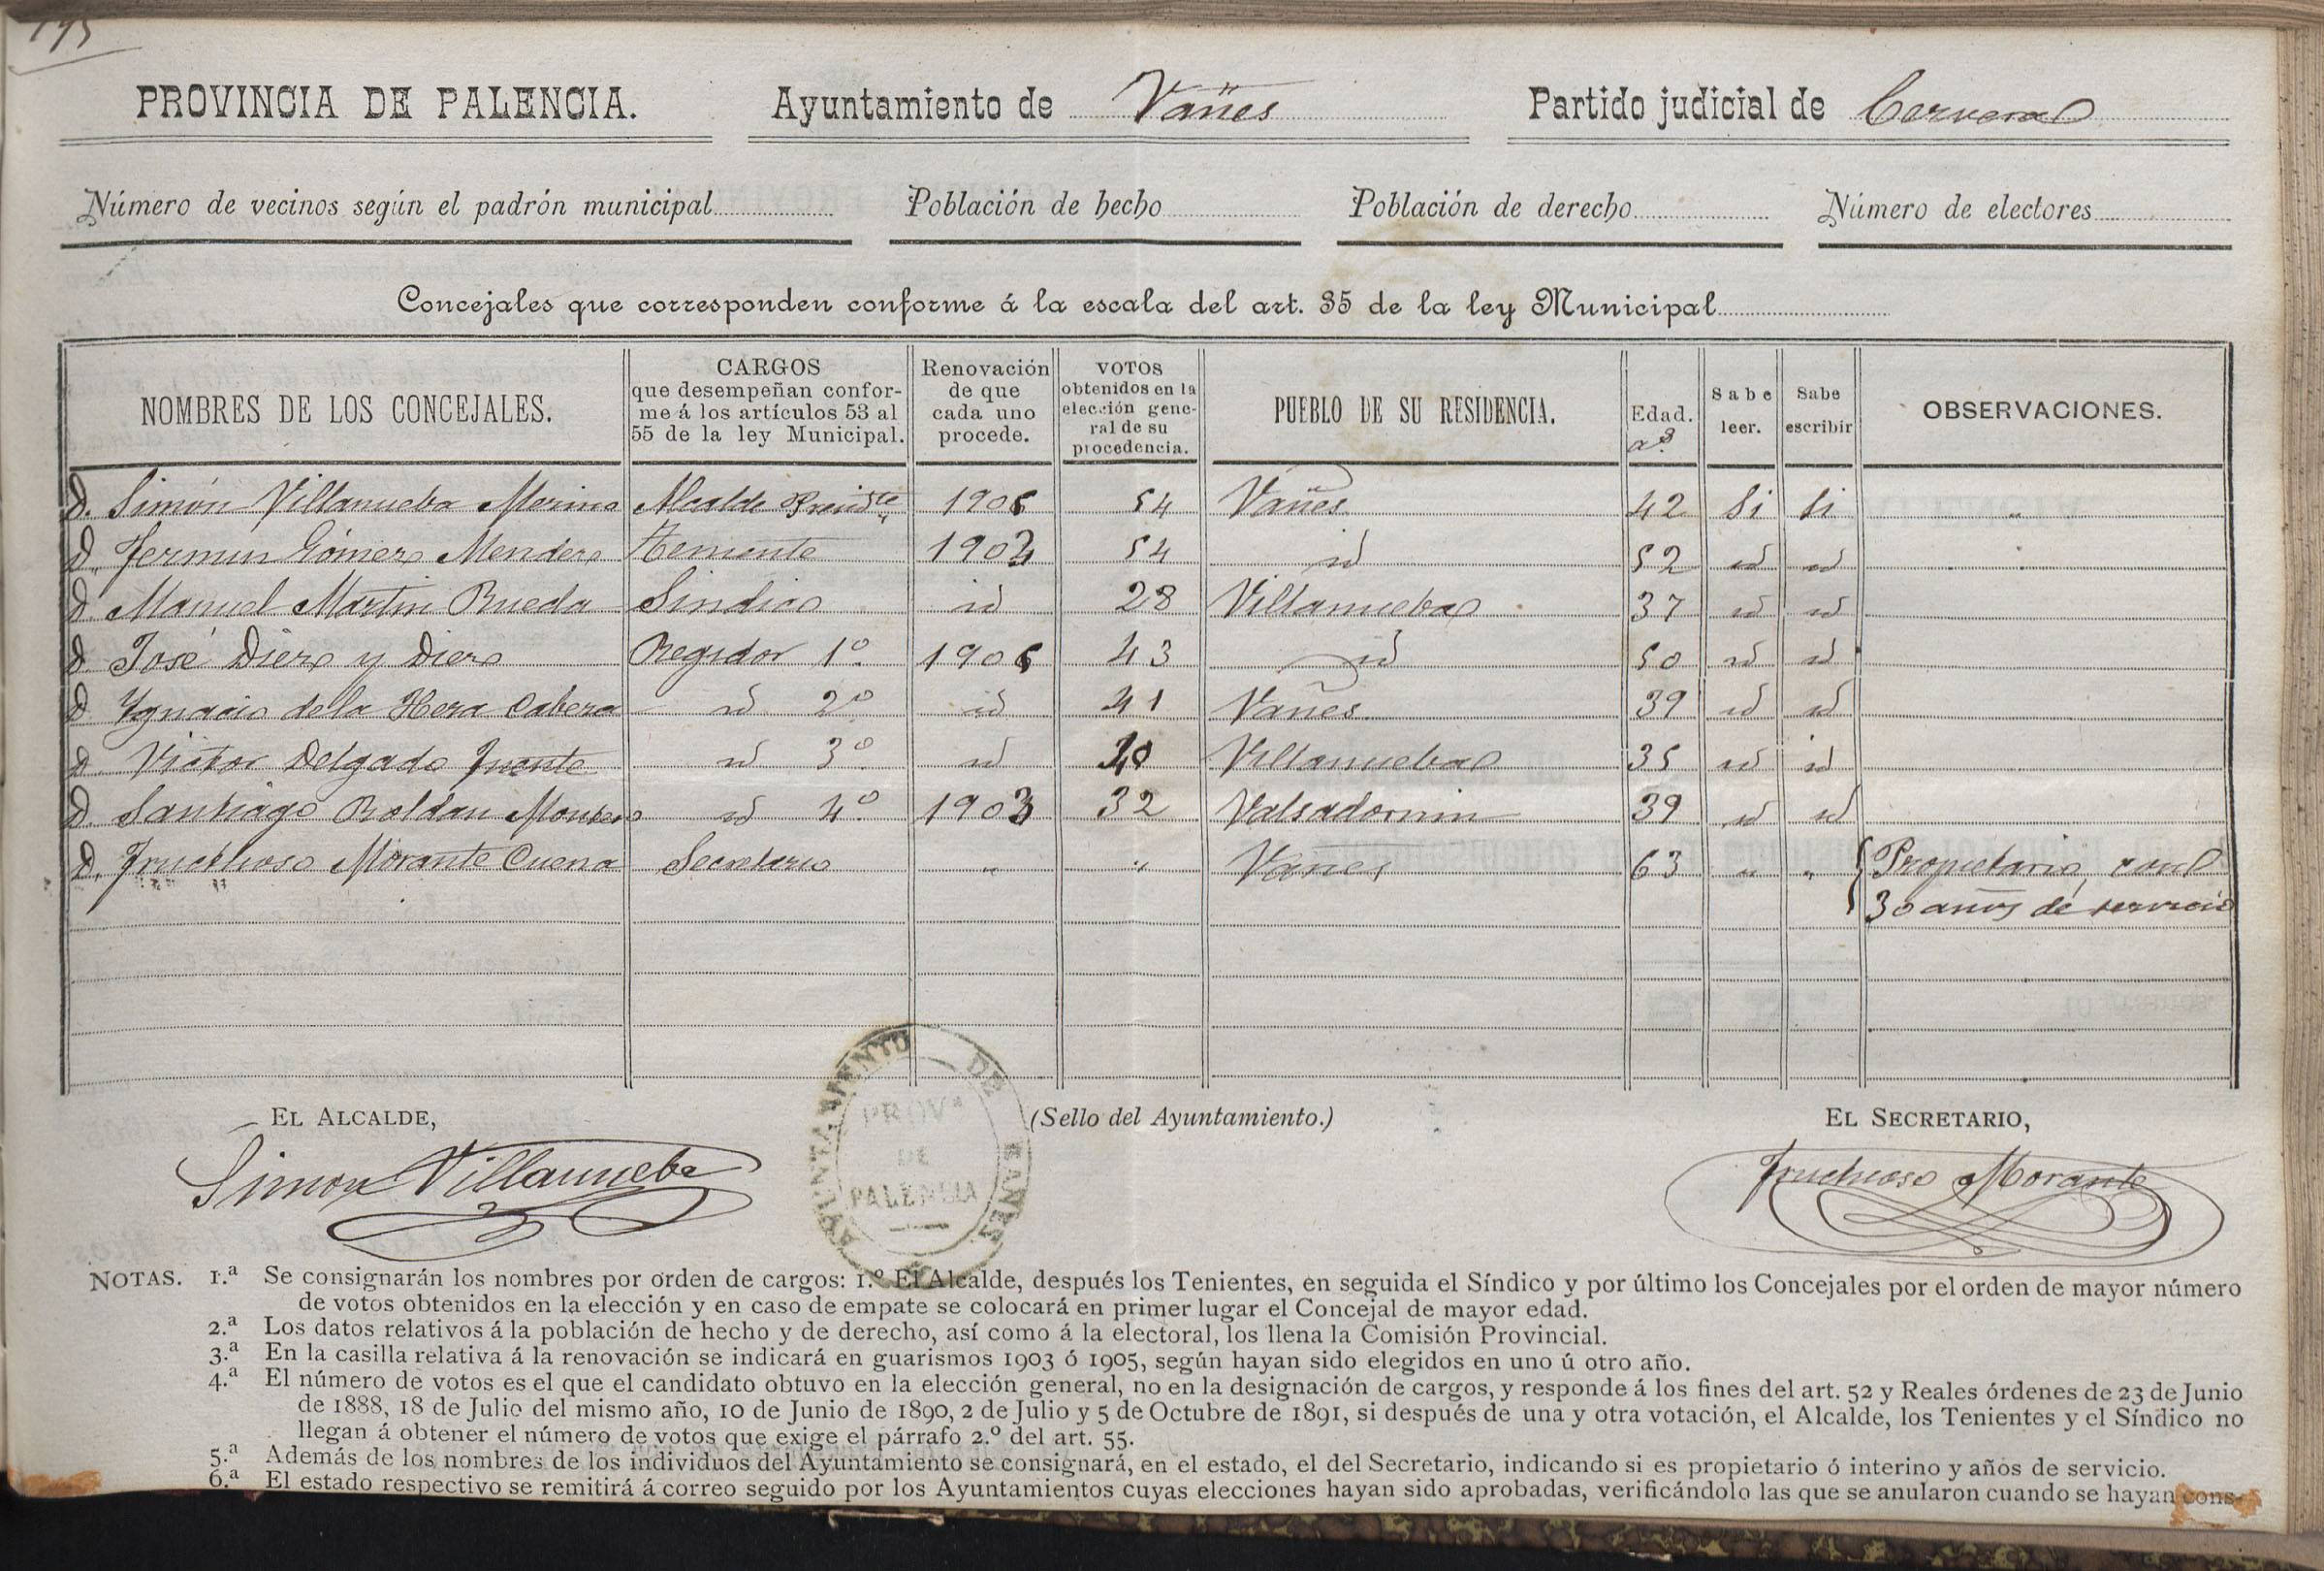 195
PROVINCIA DE PALENCIA. Ayuntamiento de Vañes Partido judicial de Cervera
Número de vecinos según el padrón municipal Población de hecho Población de derecho Número de electores
Concejales que corresponden conforme á la escala del art. 35 de la ley Municipal
NOMBRES DE LOS CONCEJALES. CARGOS que desempeñan conforme á los artículos 53 al 55 de la ley Municipal. Renovación de que cada uno procede. VOTOS obtenidos en la elección general de su procedencia. PUEBLO DE SU RESIDENCIA. Edad. aˢ Sabe leer. Sabe escribir OBSERVACIONES.
D. Simón Villanueba Merino Alcalde Presidᵗᵉ 1905 54 Vañes 42 Si Si "
D. Fermin Gómez Mendez Teniente 1903 54 id 52 id id
D. Manuel Martin Rueda Sindico id 28 Villanueba 37 id id
D José Diez y Diez Regidor 1º 1905 43 id 50 id id
D Ygnacio de la Hera Cabeza id 2º id 41 Vañes 39 id id
D. Victor Delgado Fuente id 3º id Villanueba 35 id id
D. Santiago Roldan Montero id 4º 1903 32 Valsadornin 39 id id
D. Fructuoso Morante Cuena Secretario " " Vañes 63 " " Propietario, con
30 años de servicio
EL ALCALDE, (Sello del Ayuntamiento.) EL SECRETARIO,
Simon Villanueba Fructuoso Morante
AYUNTAMIENTO DE BAÑES
PROVª
DE
PALENCIA
NOTAS. 1.ª Se consignarán los nombres por orden de cargos: 1.º El Alcalde, después los Tenientes, en seguida el Síndico y por último los Concejales por el orden de mayor número
de votos obtenidos en la elección y en caso de empate se colocará en primer lugar el Concejal de mayor edad.
2.ª Los datos relativos á la población de hecho y de derecho, así como á la electoral, los llena la Comisión Provincial.
3.ª En la casilla relativa á la renovación se indicará en guarismos 1903 ó 1905, según hayan sido elegidos en uno ú otro año.
4.ª El número de votos es el que el candidato obtuvo en la elección general, no en la designación de cargos, y responde á los fines del art. 52 y Reales órdenes de 23 de Junio
de 1888, 18 de Julio del mismo año, 10 de Junio de 1890, 2 de Julio y 5 de Octubre de 1891, si después de una y otra votación, el Alcalde, los Tenientes y el Síndico no
llegan á obtener el número de votos que exige el párrafo 2.º del art. 55.
5.ª Además de los nombres de los individuos del Ayuntamiento se consignará, en el estado, el del Secretario, indicando si es propietario ó interino y años de servicio.
6.ª El estado respectivo se remitirá á correo seguido por los Ayuntamientos cuyas elecciones hayan sido aprobadas, verificándolo las que se anularon cuando se hayan cons-